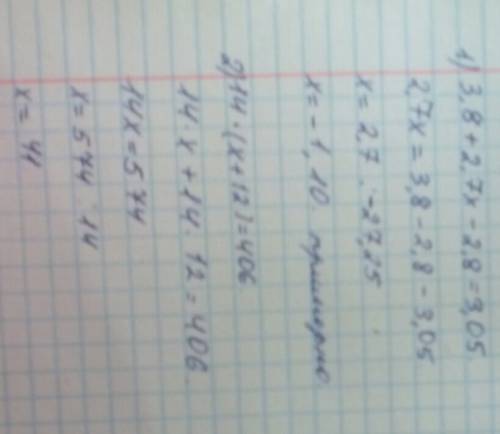 1) 3,8 + 2,7x - 2,8 = 3,05
2,7x = 3,8 - 2,8 - 3,05
x = 2,7 : -27,25
x = -1,10 примерно
2) 14 · (x + 12) = 406
14 · x + 14 · 12 = 406
14x = 574
x = 574 : 14
x = 41